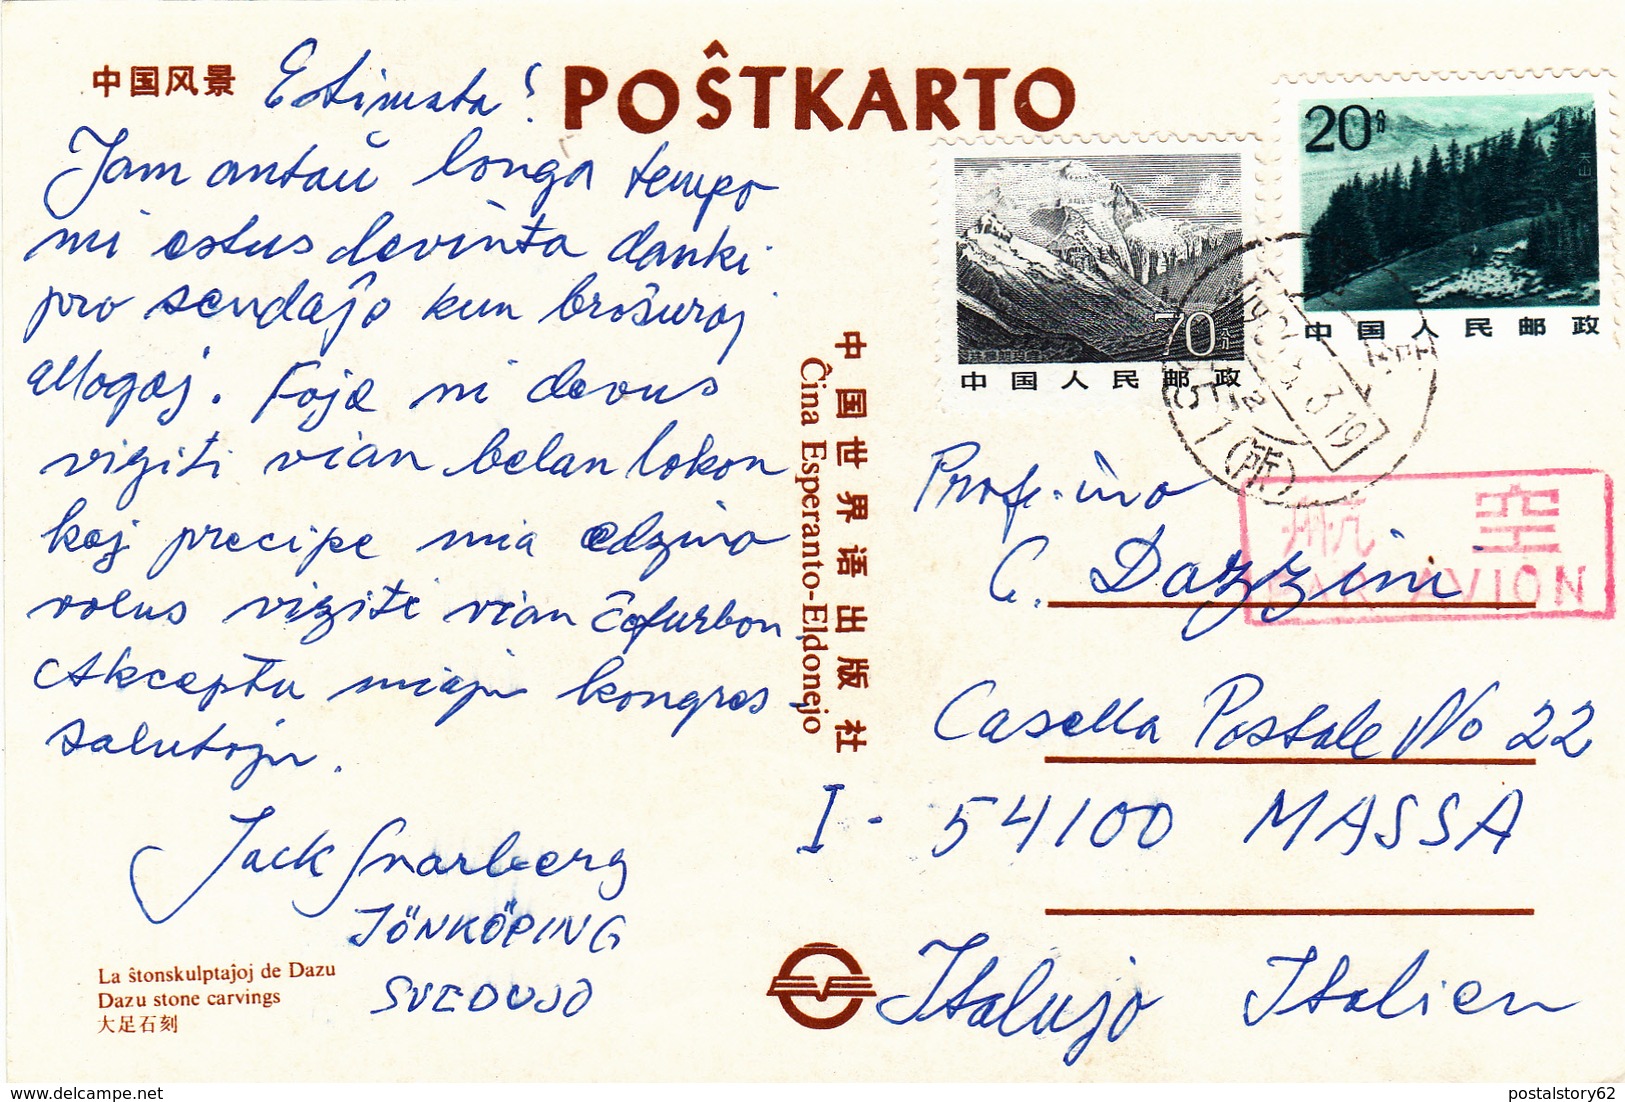 中国风景
POŜTKARTO
Estimata!
Jam antaŭ longa tempo
mi estus devinta danki
pro sendaĵo kun broŝuroj
allogaj. Foje ni devus
viziti vian belan lokon
kaj precipe mia edzino
volus viziti vian ĉefurbon.
Akceptu miajn kongres-
salutojn.
Jack Snarberg
JÖNKÖPING
SVEDUJO
La ŝtonskulptaĵoj de Dazu
Dazu stone carvings
大足石刻
中国世界语出版社
Ĉina Esperanto-Eldonejo
20分
天山
中国人民邮政
70分
中国人民邮政
(所)
航空
PAR AVION
Prof-ino
C. Dazzini
Casella Postale No 22
I - 54100 MASSA
Italujo Italien
delcampe.net
postalstory62